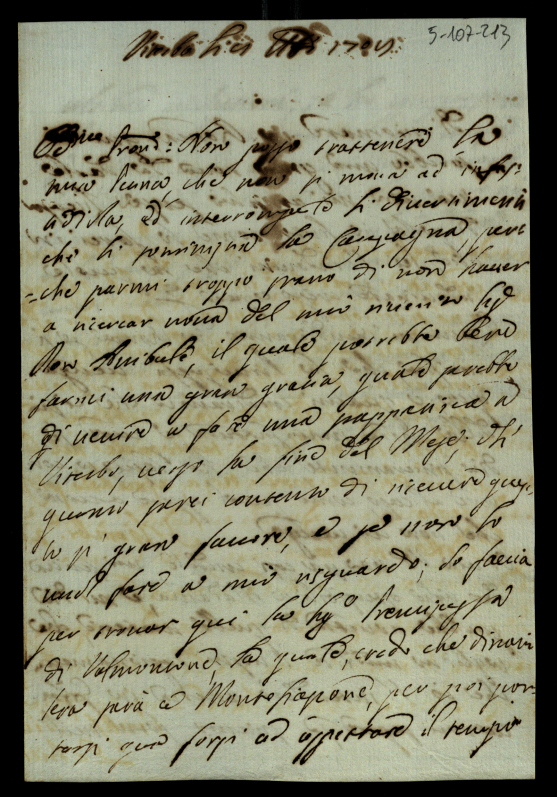 5-107-213
Viterbo li 1705
Pne: Non posso trattenere la
mia penna, che non si mova ad infas-
tidirla, ed interrompere li divertimenti
che li somministra la Campagna, per-
-che parmi troppo grave di non haver
a ricercar nova del mio riverito Sigr
Don Anibale, il quale potrebbe bene
farmi una gran gratia, quale sarebbe
di venire a fare una a
Viterbo, verso la fine del Mese, oh
quanto sarei contento di ricevere ques-
to si gran favore, e se non lo
vuol fare a mio risguardo, lo faccia
per trovar qui la Sigra Prencipessa
di Valmontone, la quale, credo che
sarà a Montefiascone, per poi por-
tarsi qua forsi ad aspettare il tempo